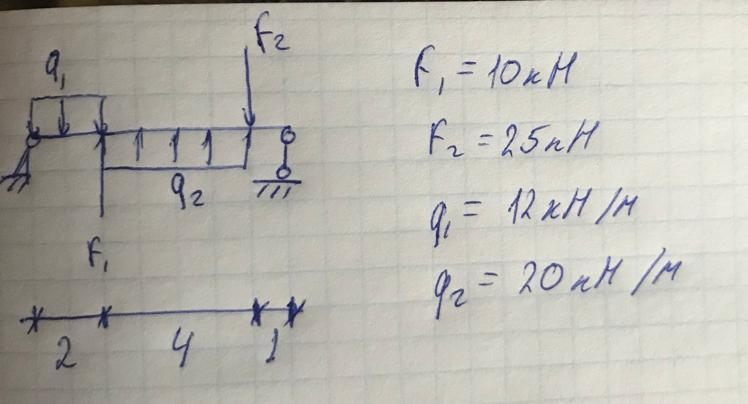 q₁
F₂
q₂
F₁
2 4 1
F₁ = 10кН
F₂ = 25кН
q₁ = 12кН/м
q₂ = 20кН/м